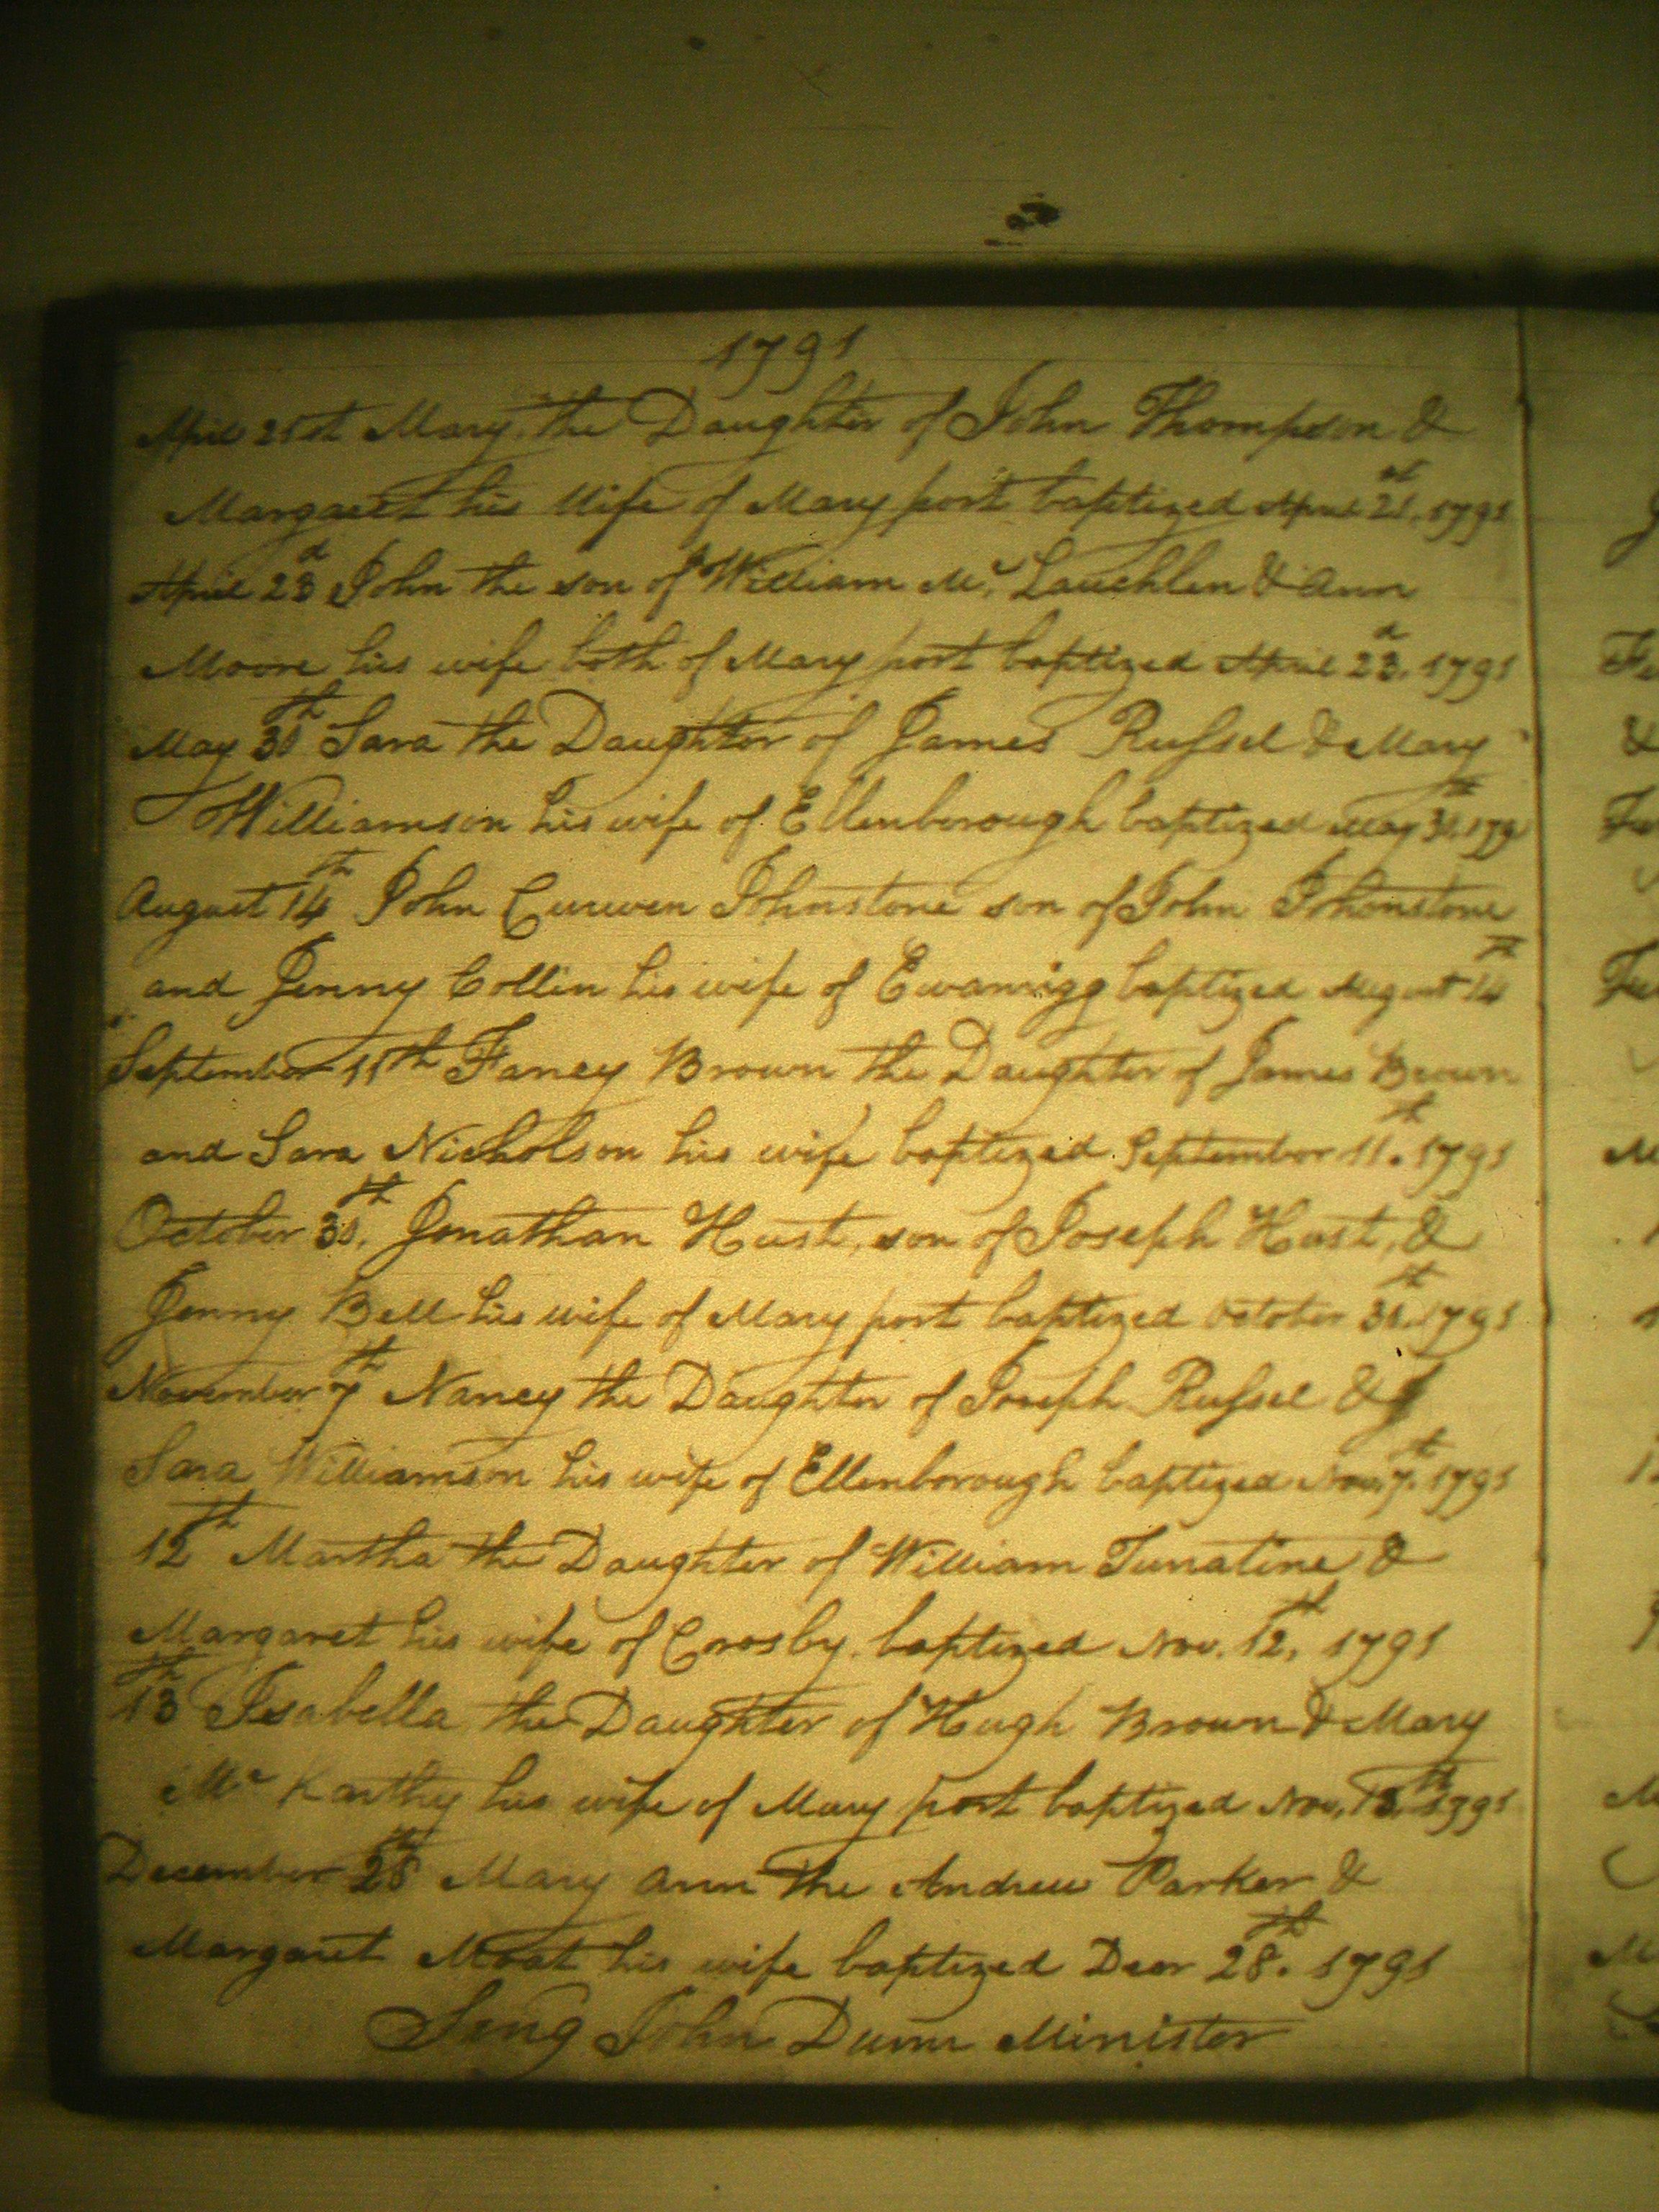 1791
April 21st Mary, the Daughter of John Thompson &
Margaret his Wife of Mary port baptized April 21st, 1791
April 23d John the son of William Mc Lauchlen & Ann
Moore his wife both of Mary port baptized April 23d, 1791
May 30th Sara the Daughter of James Rufsel & Mary
Williamson his wife of Ellenborough baptized May 30th, 179
August 14th John Curwen Johnstone son of John Johonstone
and Jenny Collin his wife of Ewanrigg baptized August 14th
September 11th Fancy Brown the Daughter of James Brown
and Sara Nicholson his wife baptized September 11th. 1791
October 30th. Jonathan Hust, son of Joseph Hust, &
Jenny Bell his wife of Mary port baptized October 30th. 1791
November 7th Nancy the Daughter of Joseph Rufsel &
Sara Williamson his wife of Ellenborough baptized Nov. 7th. 1791
12th Martha the Daughter of William Tunatine &
Margaret his wife of Crosby. baptized Nov. 12th, 1791
13th Isabella the Daughter of Hugh Brown & Mary
Mc Karthy his wife of Mary port baptized Nov. 13th, 1791
December 28th Mary Ann the Andrew Parker &
Margaret Moat his wife baptized Decr 28th. 1791
Sing John Dunn Minister